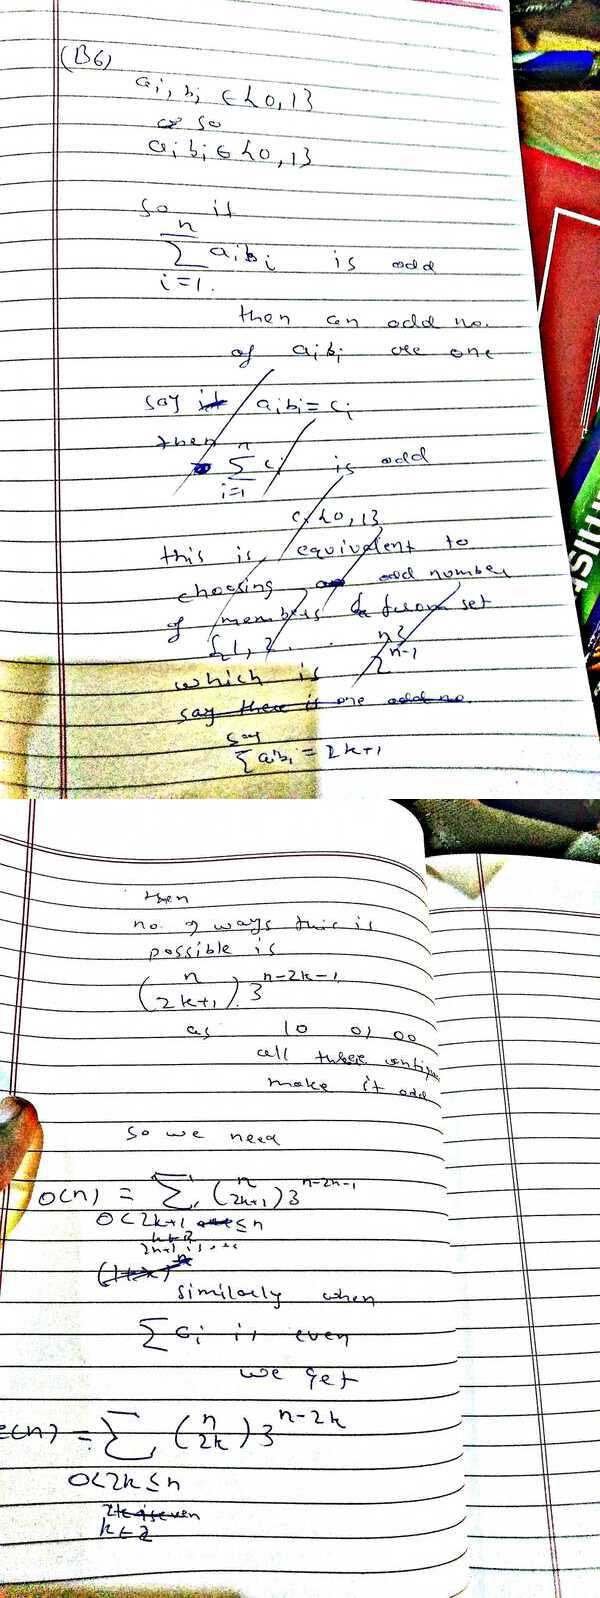 (B6)
ai, bi ∈ {0, 1}
so
ai bi ∈ {0, 1}
So if
n
∑ ai bi is odd
i=1.
then an odd no.
of ai bi are one
say it ai bi = ci
then
n
∑ ci is odd
i=1
∈ {0, 1}
this is equivalent to
choosing odd number
of members from set
{1, 2 . . . n}
which is 2^{n-1}
say there is one odd no.
say
∑ ai bi = 2k+1
then
no. of ways this is
possible is
(n 2k+1) 3^{n-2k-1}
as 10 01 00
all these
make it odd
So we need
O(n) = ∑ (n 2k+1) 3^{n-2k-1}
0<2k+1 ≤ n
(1+x)^n
similarly when
∑ ci is even
we get
e(n) = ∑ (n 2k) 3^{n-2k}
0<2k ≤ n
2k is even
k ∈ Z